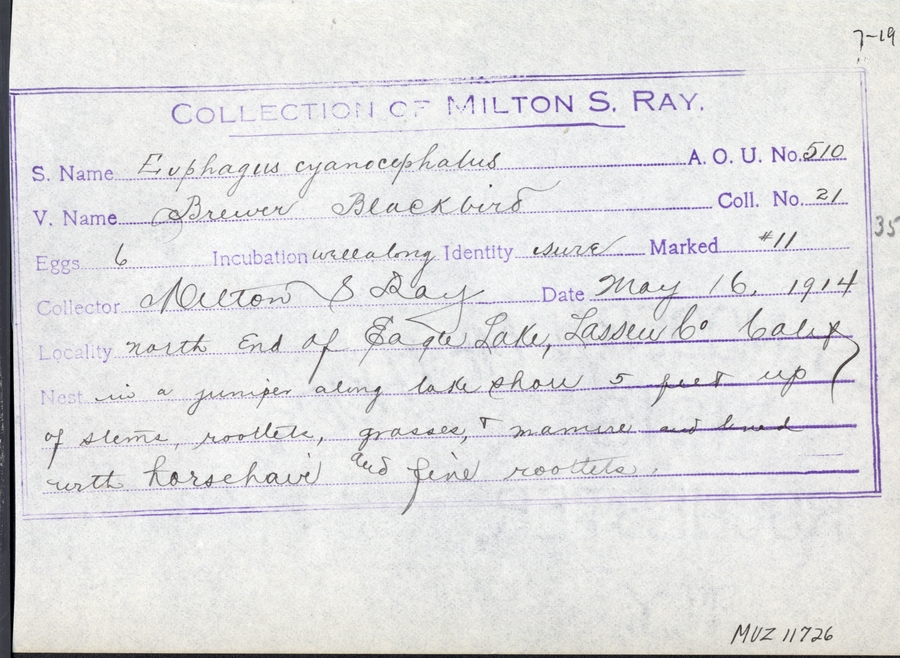 7-19
COLLECTION OF MILTON S. RAY.
S. Name Euphagus cyanocephalus A. O. U. No. 510
V. Name Brewer Blackbird Coll. No. 21
35
Eggs 6 Incubation well along Identity sure Marked #11
Collector Milton S Ray Date May 16, 1914
Locality north End of Eagle Lake, Lassen Co Calif
Nest in a juniper along lake shore 5 feet up
of stems, rootlets, grasses, + manure and lined
with horsehair and fine rootlets.
MVZ 11726